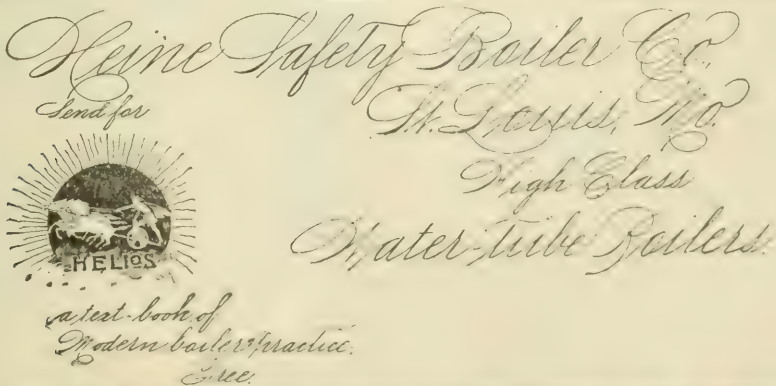 Heine Safety Boiler Co.
St. Louis, Mo.
High Class
Water-tube Boilers.
Send for
HELIOS
a text-book of
Modern boiler practice.
Free.